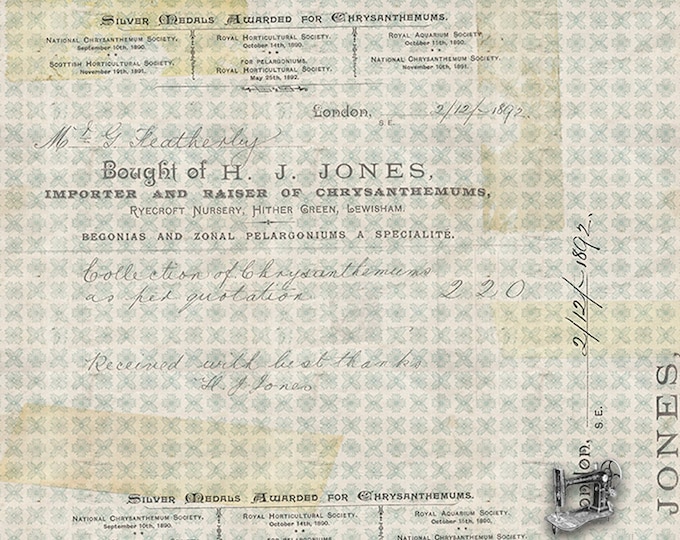 Silver Medals Awarded for Chrysanthemums.
National Chrysanthemum Society, September 10th, 1890.
Royal Horticultural Society, October 14th, 1890.
Royal Aquarium Society, October 15th, 1890.
Scottish Horticultural Society, November 19th, 1891.
FOR PELARGONIUMS.
Royal Horticultural Society, May 25th, 1892.
National Chrysanthemum Society, November 10th, 1891.
London, 2/12/-1892.
S.E.
Mr G. Featherby
Bought of H. J. JONES,
IMPORTER AND RAISER OF CHRYSANTHEMUMS,
Ryecroft Nursery, Hither Green, Lewisham.
BEGONIAS AND ZONAL PELARGONIUMS A SPECIALITE.
Collection of Chrysanthemums
as per quotation 2 2 0
Received with best thanks
H. J. Jones
2/12/-1892.
S.E.
ondon,
JONES,
Silver Medals Awarded for Chrysanthemums.
National Chrysanthemum Society, September 10th, 1890.
Royal Horticultural Society, October 14th, 1890.
Royal Aquarium Society, October 15th, 1890.